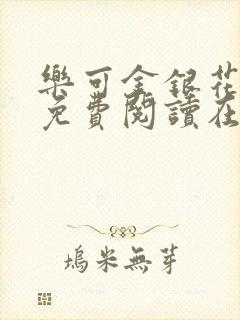 樂可金銀花
免費閱讀在
塢米無芽